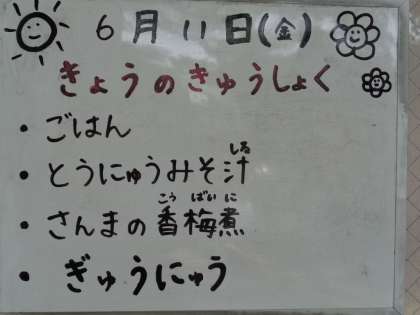 6月11日(金)
きょうのきゅうしょく
・ごはん
・とうにゅうみそ汁
しる
・さんまの香梅煮
こう ばい に
・ぎゅうにゅう